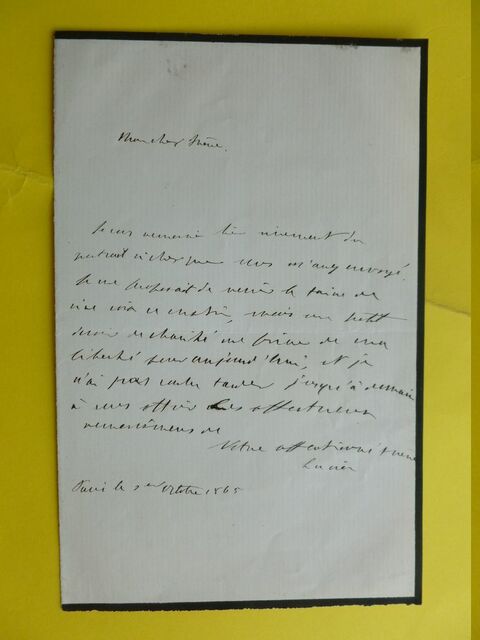 Mon cher frère.
Je vous remercie bien vivement du
portrait si cher que vous m'avez envoyé.
Je me proposais de venir le faire de
vive voix ce matin, mais un petit
devoir de charité me prive de ma
liberté pour aujourd'hui, et je
n'ai pas voulu tarder jusqu'à demain
à vous offrir les affectueux
remerciemens de
Votre affectionné frère
Lucien
Paris le octobre 1865